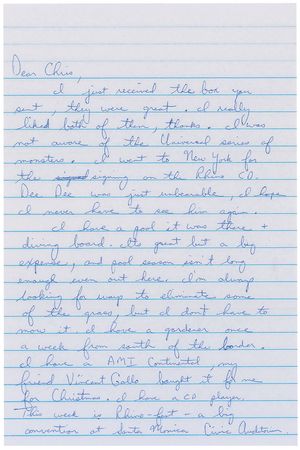 Dear Chris,
I just received the box you
sent, they were great. I really
liked both of them, thanks. I was
not aware of the Universal series of
monsters. I went to New York for
the signing on the Rhino CD.
Dee Dee was just unbearable, I hope
I never have to see him again.
I have a pool it was there +
diving board. Its great but a big
expense, and pool season isn't long
enough even out here. I'm always
looking for ways to eliminate some
of the grass, but I don't have to
mow it. I have a gardener once
a week from south of the border.
I have a AMI Continental, my
friend Vincent Gallo bought it for me
for Christmas. I have a CD player.
This week is Rhino-fest - a big
convention at Santa Monica Civic Auditorium.